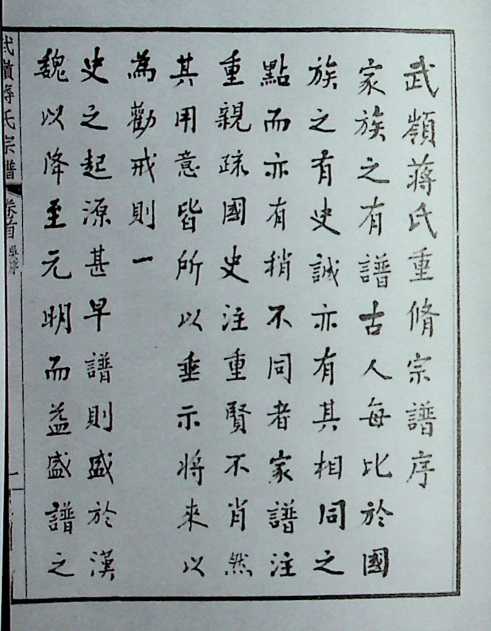 武嶺蔣氏重脩宗譜序
家族之有譜古人每比於國
族之有史誠亦有其相同之
點而亦有稍不同者家譜注
重親疏國史注重賢不肖然
其用意皆所以垂示將來以
為勸戒則一
史之起源甚早譜則盛於漢
魏以降至元明而益盛譜之
武嶺蔣氏宗譜 卷首